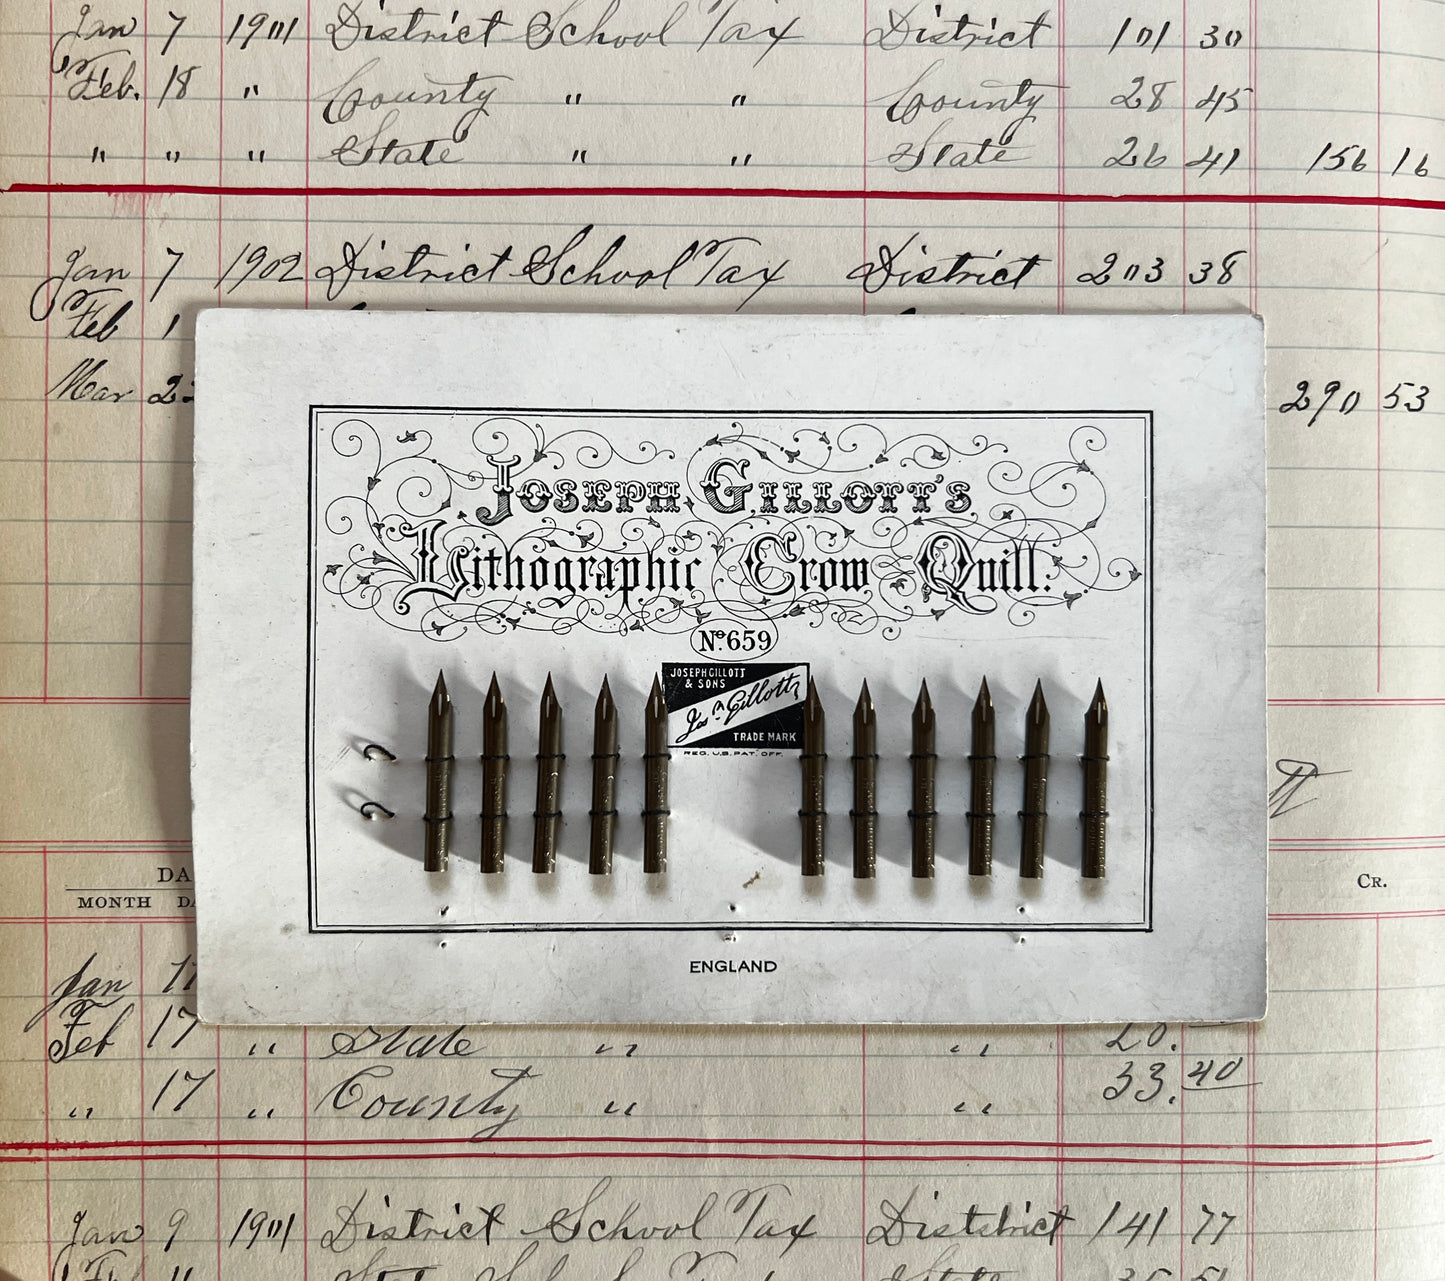 Jan 7 1901 District School Tax District 101 30
Feb. 18 " County " " County 28 45
" " " State " " State 26 41 156 16
Jan 7 1902 District School Tax District 203 38
Feb 1
Mar 290 53
JOSEPH GILLOTT'S
Lithographic Crow Quill.
No. 659
JOSEPH GILLOTT
& SONS
Josh Gillott
TRADE MARK
REG. U.S. PAT. OFF.
DA
MONTH DA
CR.
ENGLAND
Jan 17
Feb 17 " State " " 20.
" 17 " County " " 33. 40
Jan 9 1901 District School Tax Distdrict 141 77
State School Tax State 35 51